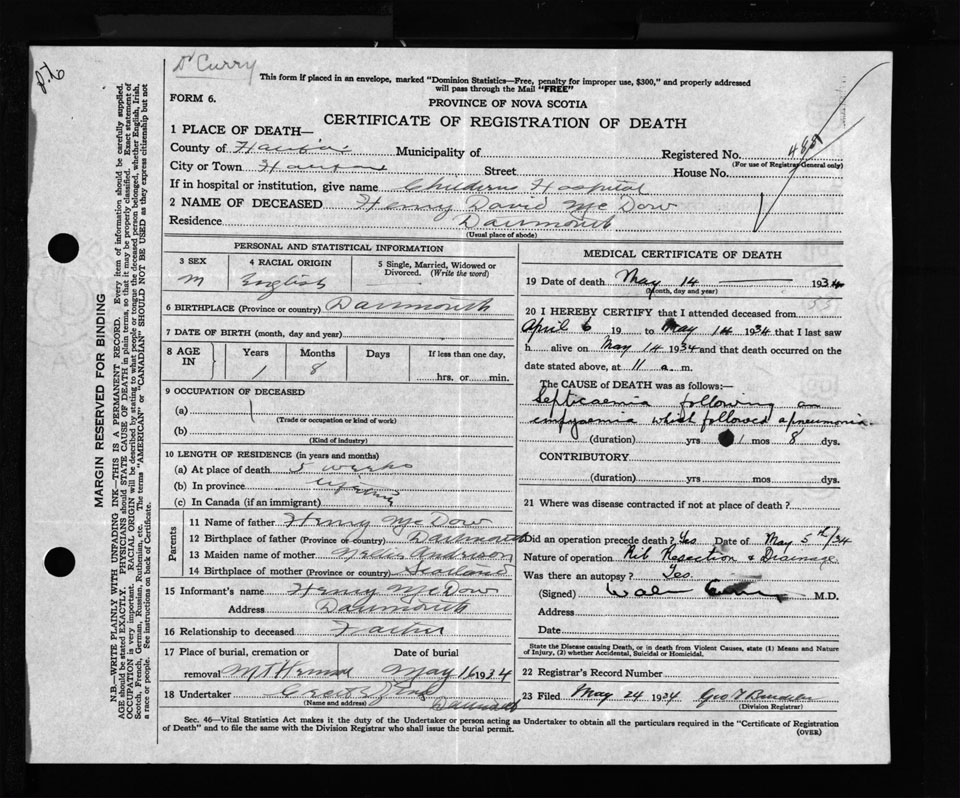 Dr Curry
This form if placed in an envelope, marked "Dominion Statistics—Free, penalty for improper use, $300," and properly addressed
will pass through the Mail "FREE"
FORM 6.
PROVINCE OF NOVA SCOTIA
CERTIFICATE OF REGISTRATION OF DEATH
1 PLACE OF DEATH—
County of Halifax Municipality of Registered No.
(For use of Registrar General only)
City or Town Halifax Street House No.
If in hospital or institution, give name Childrens Hospital
2 NAME OF DECEASED Henry David McDow
Residence Dartmouth
(Usual place of abode)
PERSONAL AND STATISTICAL INFORMATION
3 SEX 4 RACIAL ORIGIN 5 Single, Married, Widowed or
Divorced. (Write the word)
M English
6 BIRTHPLACE (Province or country) Dartmouth
7 DATE OF BIRTH (month, day and year)
8 AGE IN Years Months Days If less than one day,
1 8 hrs. or min.
9 OCCUPATION OF DECEASED
(a)
(Trade or occupation or kind of work)
(b)
(Kind of industry)
10 LENGTH OF RESIDENCE (in years and months)
(a) At place of death 5 weeks
(b) In province lifetime
(c) In Canada (if an immigrant)
Parents
11 Name of father Henry McDow
12 Birthplace of father (Province or country) Dartmouth
13 Maiden name of mother Nellie Anderson
14 Birthplace of mother (Province or country) Scotland
15 Informant's name Henry McDow
Address Dartmouth
16 Relationship to deceased Father
17 Place of burial, cremation or Date of burial
removal Mt Hermon May 16 1934
18 Undertaker
(Name and address) Dartmouth
MEDICAL CERTIFICATE OF DEATH
19 Date of death May 14 1934
(Month, day and year)
20 I HEREBY CERTIFY that I attended deceased from
April 6 19 to May 14 1934 that I last saw
h alive on May 14 1934 and that death occurred on the
date stated above, at 11 a. m.
The CAUSE OF DEATH was as follows:—
Septicaemia following an
empyaemia which followed a pneumonia.
(duration) yrs 1 mos 8 dys.
CONTRIBUTORY
(duration) yrs mos dys.
21 Where was disease contracted if not at place of death?
Did an operation precede death? Yes Date of May 5th/34
Nature of operation Rib Resection & Drainage
Was there an autopsy? Yes.
(Signed) M.D.
Address
Date
State the Disease causing Death, or in death from Violent Causes, state (1) Means and Nature
of Injury, (2) whether Accidental, Suicidal or Homicidal.
22 Registrar's Record Number
23 Filed May 24 1934 Geo
(Division Registrar)
Sec. 46—Vital Statistics Act makes it the duty of the Undertaker or person acting as Undertaker to obtain all the particulars required in the "Certificate of Registration
of Death" and to file the same with the Division Registrar who shall issue the burial permit.
(OVER)
MARGIN RESERVED FOR BINDING
N.B.—WRITE PLAINLY WITH UNFADING INK—THIS IS A PERMANENT RECORD. Every item of information should be carefully supplied.
AGE should be stated EXACTLY. PHYSICIANS should STATE CAUSE OF DEATH in plain terms, so that it may be properly classified. Exact statement of
OCCUPATION is very important. RACIAL ORIGIN will be described by stating to what people or tongue the deceased person belonged, whether English, Irish,
Scotch, French, German, Russian, Ruthenian, etc. The terms "AMERICAN" or "CANADIAN" SHOULD NOT BE USED as they express citizenship but not
a race or people. See instructions on back of Certificate.